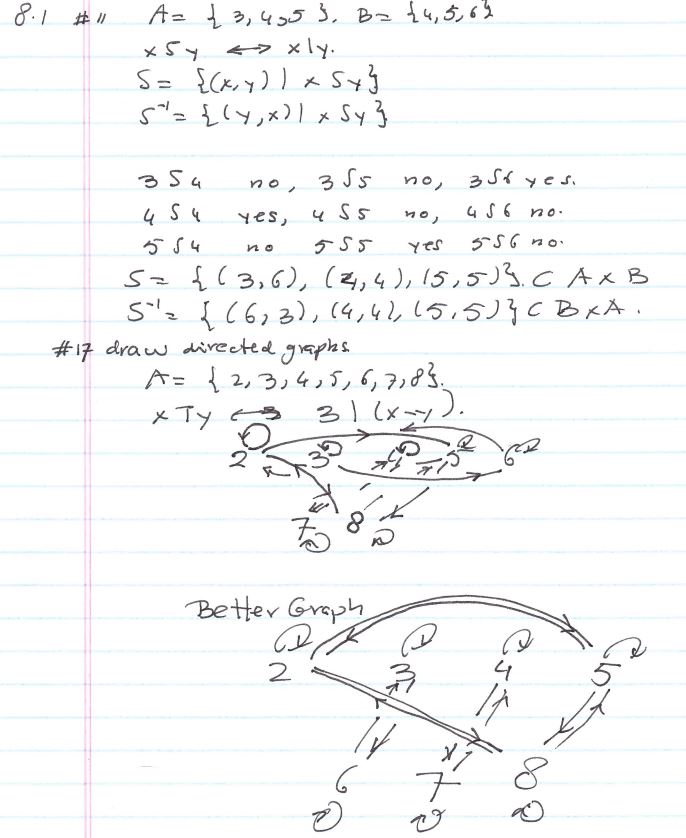 8.1 #11 A = {3,4,5}. B = {4,5,6}
x S y ↔ x|y.
S = {(x,y) | x S y}
S⁻¹ = {(y,x) | x S y}
3 S 4 no, 3 S 5 no, 3 S 6 yes.
4 S 4 yes, 4 S 5 no, 4 S 6 no.
5 S 4 no 5 S 5 yes 5 S 6 no.
S = {(3,6), (4,4), (5,5)}. ⊂ A x B
S⁻¹ = {(6,3), (4,4), (5,5)} ⊂ B x A.
#17 draw directed graphs
A = {2, 3, 4, 5, 6, 7, 8}.
x T y ↔ 3 | (x-y).
2 3 4 5 6
7 8
Better Graph
2 3 4 5
6 7 8